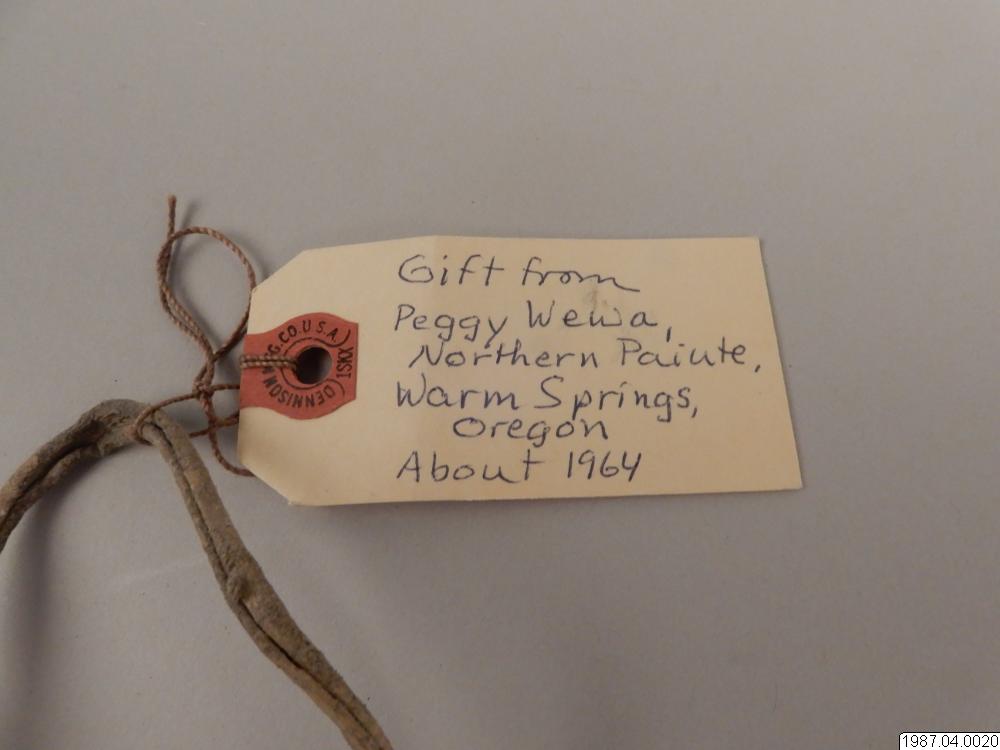 Gift from
Peggy Wewa,
Northern Paiute,
Warm Springs,
Oregon
About 1964
DENNISON MFG.CO.U.S.A.
1SKX
1987.04.0020